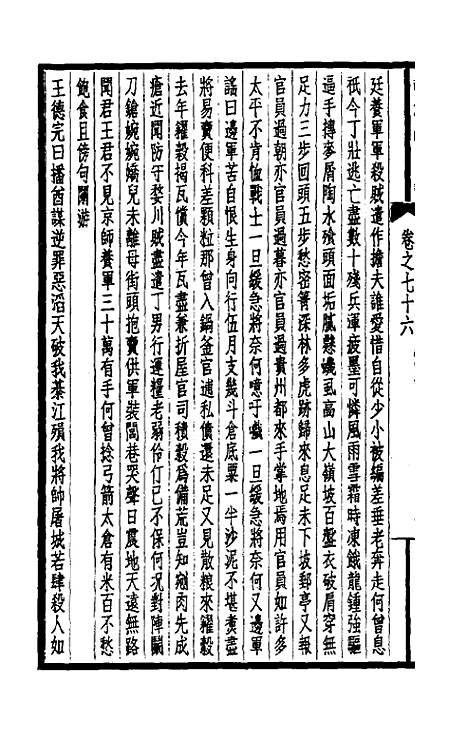 廷養軍軍殺賊遣作擔夫誰愛惜自從少小被編差垂老奔走何曾息
祇今丁壯逃亡盡數十殘兵渾疲墨可憐風雨雪霜時凍餓龍鍾強驅
逼手摶麥屑陶水飱頭面垢膩懸蟣虱高山大嶺坡百盤衣破肩穿無
足力三步回頭五步愁密箐深林多虎跡歸來息足未下坡郵亭又報
官員過朝亦官員過暮亦官員過貴州都來手掌地焉用官員如許多
太平不肯恤戰士一旦緩急將奈何噫吁嚱一旦緩急將奈何又邊軍
謡曰邊軍苦自恨生身向行伍月支幾斗倉底粟一半沙泥不堪煮盡
將易賣便科差顆粒那曾入鍋釜官逋私債還未足又見散粮來糴穀
去年糴穀揭瓦償今年瓦盡兼折屋官司積穀爲備荒豈知剜肉先成
瘡近聞防守婺川賊盡遣丁男行運糧老弱伶仃已不保何况對陣鬭
刀鎗婉婉嬌兒未離母街頭抱賣供軍裝閭巷哭聲日震地天遠無路
聞君王君不見京師養軍三十萬有手何曾捻弓箭太倉有米百不愁
飽食且傍勾闌游
王德完曰播酋謀逆罪惡滔天破我綦江殞我將帥屠城若肆殺人如
卷之七十六